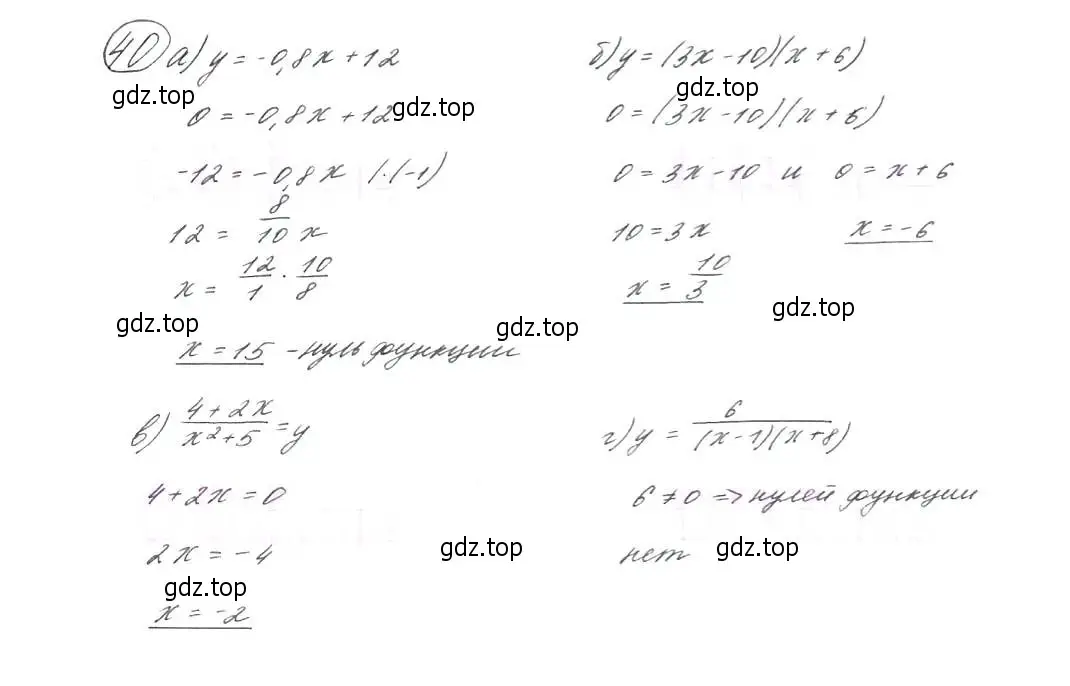 40 а) y = -0,8x + 12
gdz.top
0 = -0,8x + 12 gdz.top
-12 = -0,8x |·(-1)
12 = 8/10 x
x = 12/1 · 10/8
gdz.top
gdz.top
x = 15 - нуль функции
б) y = (3x - 10)(x + 6)
gdz.top
0 = (3x - 10)(x + 6)
0 = 3x - 10 и 0 = x + 6
10 = 3x x = -6
x = 10/3
gdz.top
в) (4 + 2x)/(x² + 5) = y
4 + 2x = 0
2x = -4
gdz.top
gdz.top
x = -2
г) y = 6/((x - 1)(x + 8))
6 ≠ 0 => нулей функции
нет gdz.top